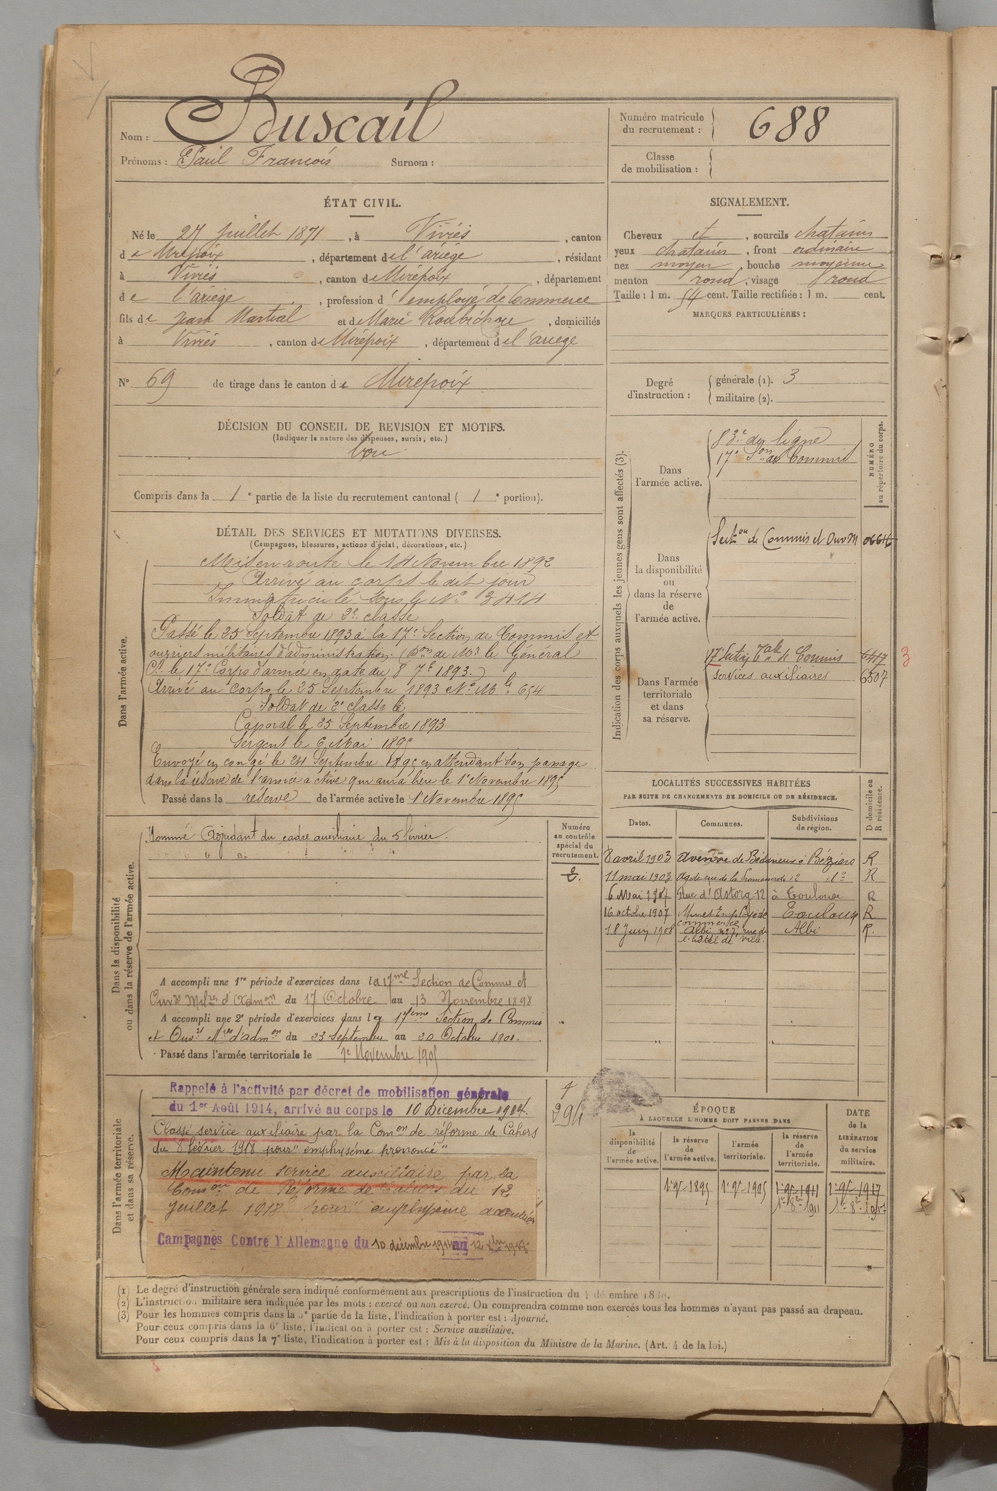 Nom : Buscail
Prénoms : Paul François Surnom :
Numéro matricule du recrutement : 688
Classe de mobilisation :
ÉTAT CIVIL.
Né le 27 juillet 1871, à Viviès, canton
de Mirepoix, département de l'ariège, résidant
à Viviès, canton de Mirepoix, département
de l'ariège, profession d'employé de Commerce
fils de Jean Martial et de Marie, domiciliés
à Viviès, canton de Mirepoix, département de l'ariège
N° 69 de tirage dans le canton de Mirepoix
SIGNALEMENT.
Cheveux et, sourcils chatains
yeux chatains, front ordinaire
nez moyen, bouche moyenne
menton rond, visage rond
Taille : 1 m. 54 cent. Taille rectifiée : 1 m. cent.
MARQUES PARTICULIÈRES :
Degré d'instruction : générale (1). 3
militaire (2).
DÉCISION DU CONSEIL DE REVISION ET MOTIFS.
(Indiquer la nature des dispenses, sursis, etc.)
bon
Compris dans la 1e partie de la liste du recrutement cantonal ( 1e portion).
DÉTAIL DES SERVICES ET MUTATIONS DIVERSES.
(Campagnes, blessures, actions d'éclat, décorations, etc.)
Dans l'armée active.
Mis en route le 14 Novembre 1892
Arrivé au corps le dit jour
Immatriculé sous le N° 3414
Soldat de 2e classe
Passé le 25 Septembre 1893 à la 17e Section de Commis et
ouvriers militaires d'administration (Don de Mr le Général
Ct le 17e Corps d'armée en date du 8 7e 1893.)
Arrivé au Corps le 25 Septembre 1893 N° Mle 654
Soldat de 2e classe le
Caporal le 25 Septembre 1893
Sergent le 6 Mai 1895
Envoyé en congé le 24 Septembre 1895 en attendant son passage
dans la réserve de l'armée active qui aura lieu le 1er Novembre 1895
Passé dans la réserve de l'armée active le 1 Novembre 1895
Dans la disponibilité ou dans la réserve de l'armée active.
Nommé Adjudant du cadre auxiliaire du 5 février
A accompli une 1re période d'exercices dans la 17me Section de Commis et
Ouvrs Milres d'Admon du 17 Octobre au 13 Novembre 1898
A accompli une 2e période d'exercices dans la 17eme Section de Commis
et Ouvrs Mres d'admon du 23 septembre au 20 Octobre 1901.
Passé dans l'armée territoriale le 1er Novembre 1905
Numéro au contrôle spécial du recrutement.
Dans l'armée territoriale et dans sa réserve.
Rappelé à l'activité par décret de mobilisation générale
du 1er Août 1914, arrivé au corps le 10 Décembre 1914.
Classé service auxiliaire par la Comon de réforme de Cahors
du 8 février 1918 pour "emphysème prononcé"
Maintenu service auxiliaire par la
Comon de Réforme de Cahors du 12
juillet 1918 pour emphysème
Campagnes Contre l'Allemagne du 10 décembre 1914 au
294
Indication des corps auxquels les jeunes gens sont affectés (3).
NUMÉRO au répertoire du corps.
Dans l'armée active.
83e de ligne
17e Son de Commis
Dans la disponibilité ou dans la réserve de l'armée active.
Section de Commis et Ouv M
Dans l'armée territoriale et dans sa réserve.
17 Section de Commis 6417
Services auxiliaires 6507
3
LOCALITÉS SUCCESSIVES HABITÉES
PAR SUITE DE CHANGEMENTS DE DOMICILE OU DE RÉSIDENCE.
Dates. Communes. Subdivisions de région. D domicile ou R résidence.
8 avril 1903 avenue de Bédarieux à Béziers R
11 mai 1903 Agde rue de la Promenade 12 d° R
6 Mai 1907 Rue d'Astorg 12 à Toulouse R
16 octobre 1907 Toulouse R
18 Juin 1908 Albi n° 7, rue de l'hôtel de ville Albi R.
ÉPOQUE
À LAQUELLE L'HOMME DOIT PASSER DANS
la disponibilité de l'armée active. la réserve de l'armée active. l'armée territoriale. la réserve de l'armée territoriale. DATE de la LIBÉRATION du service militaire.
1er 9e 1895 1er 9e 1905 1er 9e 1911 1er 9e 1917
(1) Le degré d'instruction générale sera indiqué conformément aux prescriptions de l'instruction du
(2) L'instruction militaire sera indiquée par les mots : exercé ou non exercé. On comprendra comme non exercés tous les hommes n'ayant pas passé au drapeau.
(3) Pour les hommes compris dans la 5e partie de la liste, l'indication à porter est : Ajourné.
Pour ceux compris dans la 6e liste, l'indication à porter est : Service auxiliaire.
Pour ceux compris dans la 7e liste, l'indication à porter est : Mis à la disposition du Ministre de la Marine. (Art. 4 de la loi.)